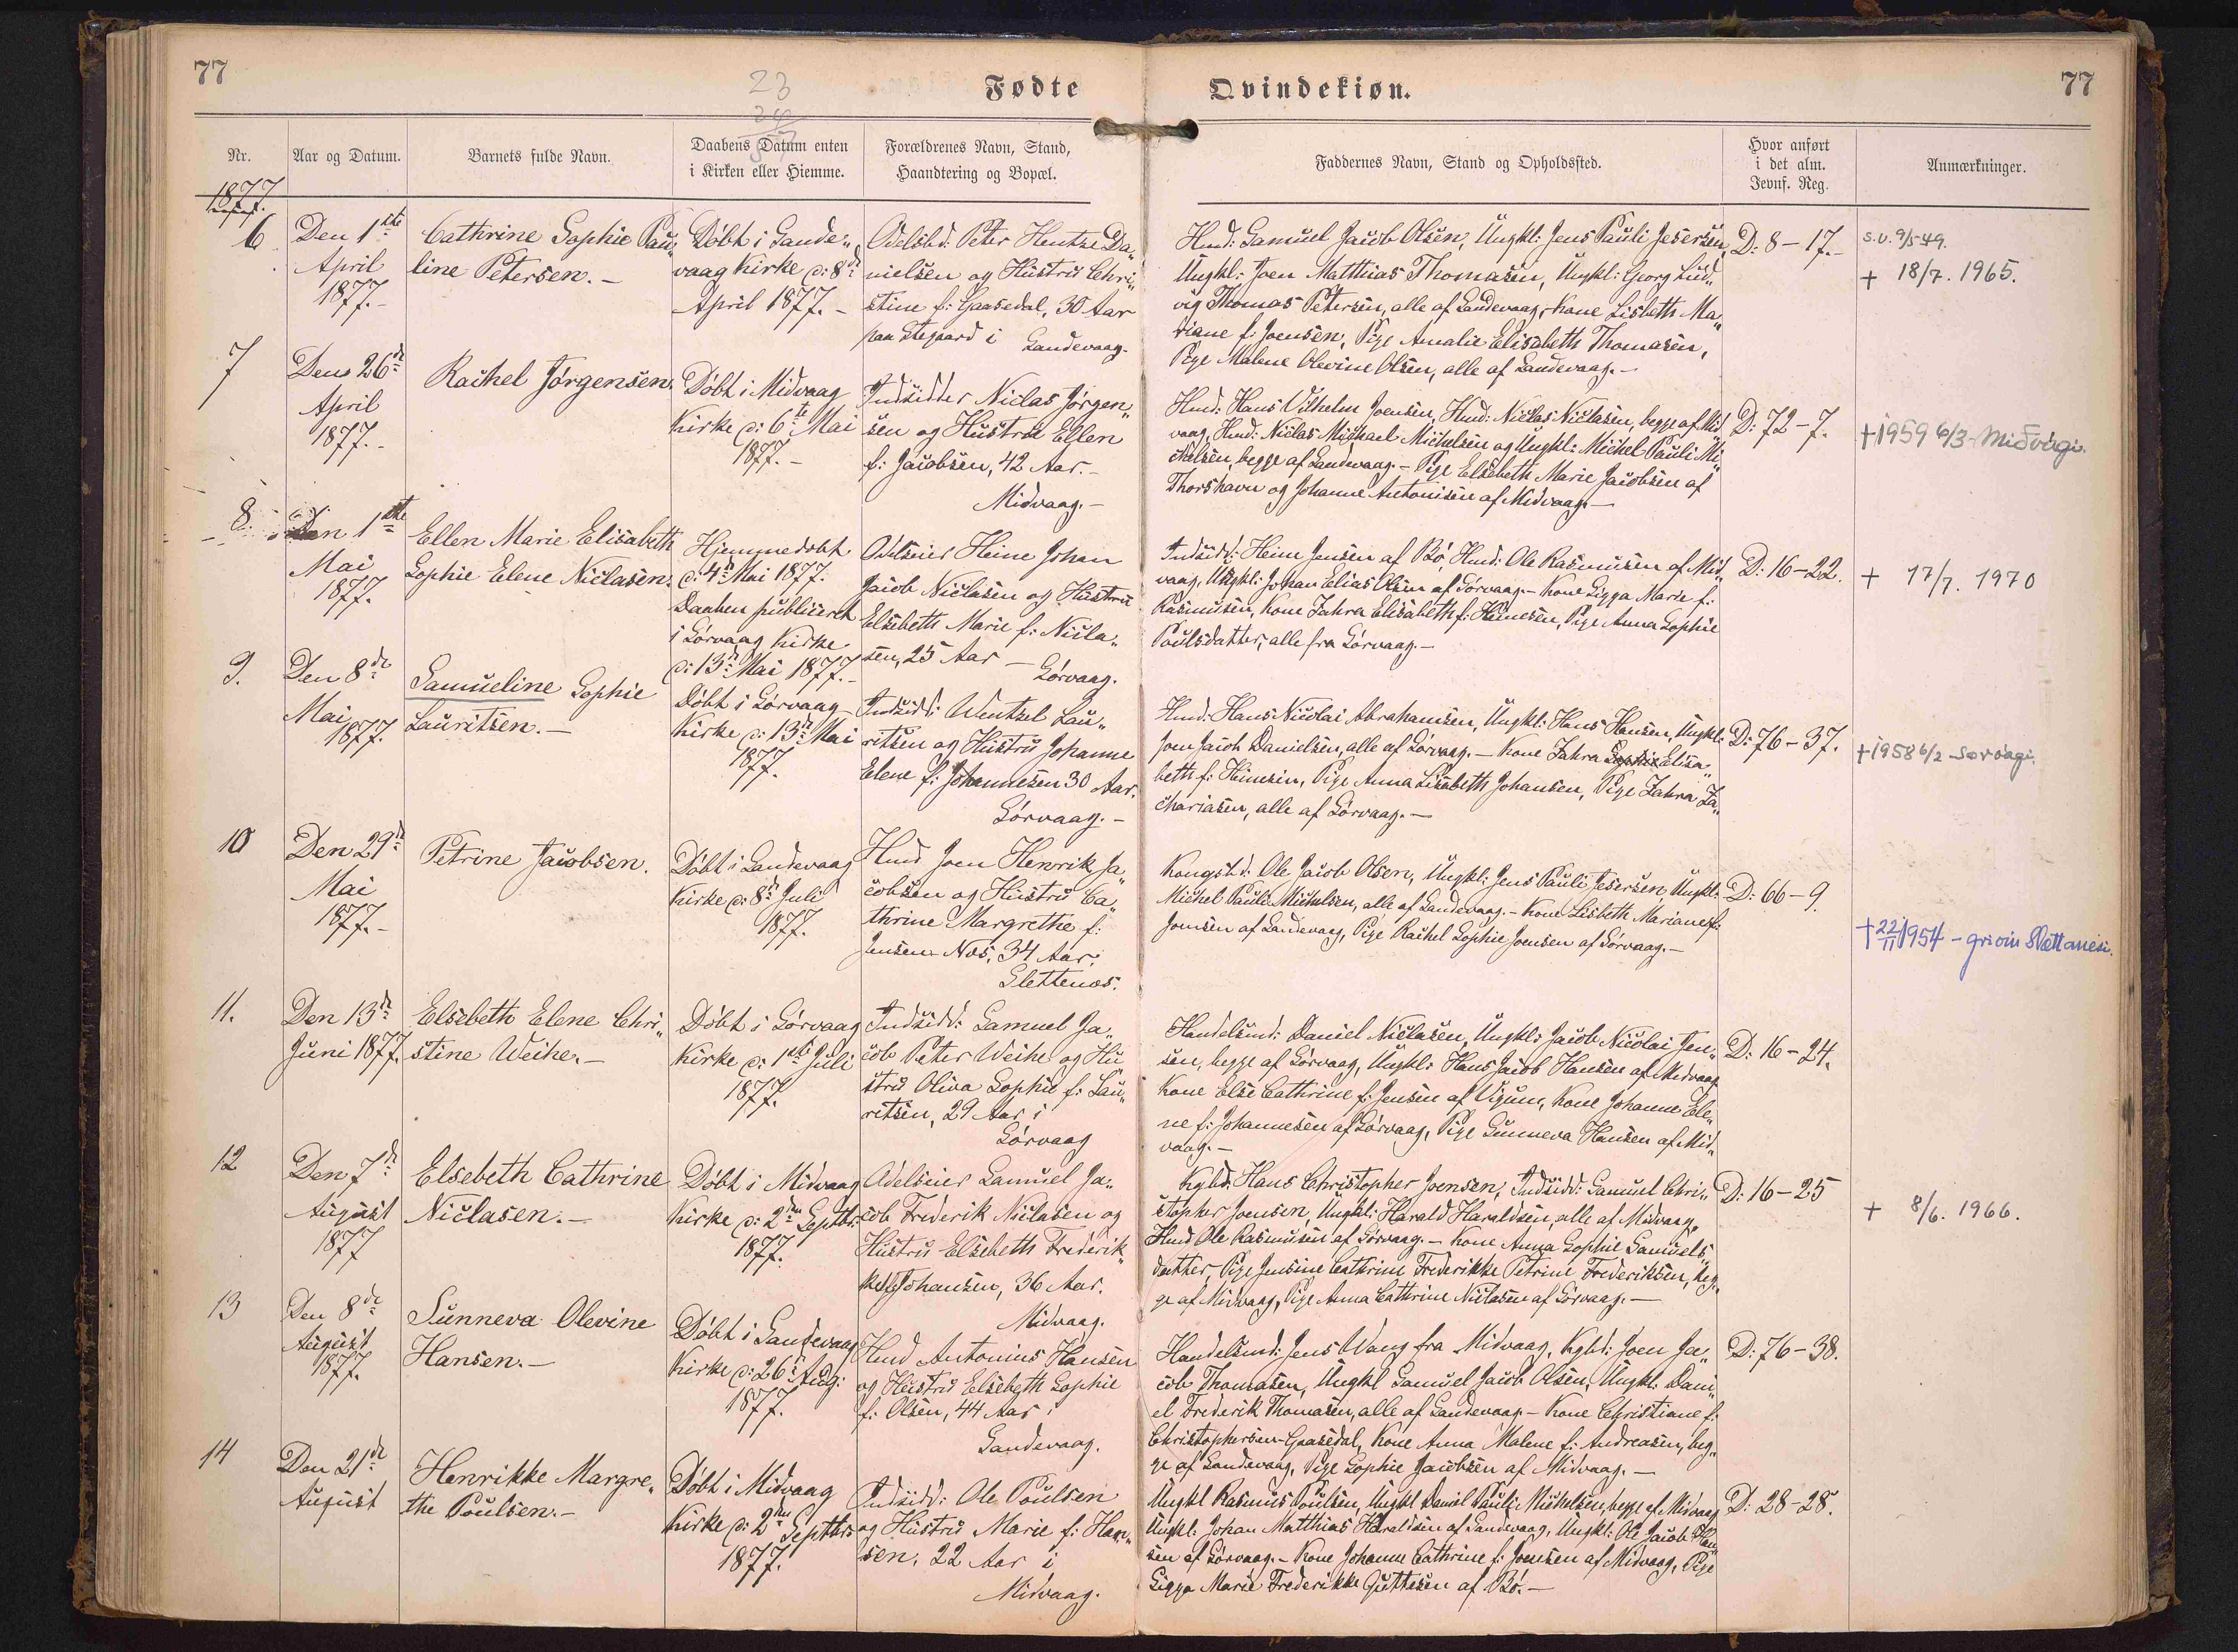 77
Fødte
Qvindekiøn.
77
23
24
Nr.
Aar og Datum.
Barnets fulde Navn.
Daabens Datum enten
i Kirken eller Hiemme.
Forældrenes Navn, Stand,
Haandtering og Bopæl.
Faddernes Navn, Stand og Opholdssted.
Hvor anført
i det alm.
Jevnf. Reg.
Anmærkninger.
1877.
6
Den 1ste
April
1877.-
Cathrine Sophie Pau„
line Petersen.-
Døbt i Sande„
vaag Kirke d: 8de
April 1877.-
Odelsbd: Peter Hentze Da„
nielsen og Hustru Chri„
stine f: Gaasedal, 30 Aar
paa Stegaard i Sandevaag-
Hmd: Samuel Jacob Olsen, Ungkl: Jens Pauli Jesersen,
Ungkl: Joen Matthias Thomasen, Ungkl: Georg Lud„
vig Thomas Petersen, alle af Sandevaag, Kone Lisbeth Ma„
riane f. Joensen, Pige Amalie Elisabeth Thomasen,
Pige Malene Olevine Olsen, alle af Sandevaag.-
D: 8-17.-
s.v. 9/5 49.
+ 18/7. 1965.
7
Den 26de
April
1877.-
Rachel Jørgensen.
Døbt i Midvaag
Kirke d: 6te Mai
1877.-
Indsidder Niclas Jørgen„
sen og Hustru Ellen
f: Jacobsen, 42 Aar.-
Midvaag.-
Hmd: Hans Vilhelm Joensen, Hmd: Niclas Niclasen, begge af Mid„
vaag, Hmd: Niclas Michael Michelsen og Ungkl: Michel Pauli Mi„
chelsen, begge af Sandevaag.- Pige Elsebeth Marie Jacobsen af
Thorshavn og Johanne Antonisen af Midvaag.-
D: 72-7.
+1959 6/3-Miðvági.
8.
Den 1ste
Mai
1877.
Ellen Marie Elisabeth
Sophie Elene Niclasen.
Hjemmedøbt
d: 4de Mai 1877.
Daaben publiceret
i Sørvaag Kirke
d: 13de Mai 1877.-
Odelseier Heine Johan
Jacob Niclasen og Hustru
Elsebeth Marie f: Nicla„
sen, 25 Aar -
Sørvaag.
Indsidd: Heine Jensen af Bø, Hmd: Ole Rasmusen af Mid„
vaag, Ungkl: Johan Elias Olsen af Sørvaag.- Kone Sigga Marie f:
Rasmusen, Kone Zahra Elisabeth f: Heinesen, Pige Anna Sophie
Poulsdatter, alle fra Sørvaag.-
D: 16-22.
+ 17/7. 1970
9.
Den 8de
Mai
1877.
Samueline Sophie
Lauritsen.-
Døbt i Sørvaag
Kirke d: 13de Mai
1877.
Indsidd: Wentzel Lau„
ritsen og Hustru Johanne
Elene f: Johannesen 30 Aar.
Sørvaag.-
Hmd: Hans Nicolai Abrahamsen, Ungkl: Hans Hansen, Ungkl:
Joen Jacob Danielsen, alle af Sørvaag.- Kone Zahra Sophie Elisa„
beth f: Heinesen, Pige Anna Lisabeth Johansen, Pige Zahra Za„
chariasen, alle af Sørvaag.-
D: 76-37.
+1958 6/2-Sørvági.
10
Den 29de
Mai
1877.-
Petrine Jacobsen.
Døbt i Sandevaag
Kirke d: 8de Juli
1877.
Hmd Joen Henrik Ja„
cobsen og Hustru Ca„
thrine Margrethe f:
Jensen Nøs, 34 Aar.
Slettenæs.
Kongsbd: Ole Jacob Olsen, Ungkl: Jens Pauli Jesersen, Ungkl:
Michel Pauli Michelsen, alle af Sandevaag.- Kone Lisbeth Mariane f:
Joensen af Sandevaag, Pige Rachel Sophie Joensen af Sørvaag.-
D: 66-9.
+22/11 1954-grivin Slættanesi.
11.
Den 13de
Juni 1877.
Elsebeth Elene Chri„
stine Weihe.-
Døbt i Sørvaag
Kirke d: 1ste Juli
1877.
Indsidd: Samuel Ja„
cob Peter Weihe og Hu„
stru Oliva Sophie f: Lau„
ritsen, 29 Aar i
Sørvaag
Handelsmd: Daniel Niclasen, Ungkl: Jacob Nicolai Jen„
sen, begge af Sørvaag, Ungkl: Hans Jacob Hansen af Midvaag
Kone Else Cathrine f: Jensen af Vigum, Kone Johanne Ele„
ne f: Johannesen af Sørvaag, Pige Sunneva Hansen af Mid„
vaag.-
D: 16-24.
12
Den 7de
August
1877
Elsebeth Cathrine
Niclasen.-
Døbt i Midvaag
Kirke d: 2den Septbr:
1877.
Odelseier Samuel Ja„
cob Frederik Niclasen og
Hustru Elsebeth Frederik„
ke f: Johansen, 36 Aar.
Midvaag.
Kgbd: Hans Christopher Joensen, Indsidd: Samuel Chri„
stopher Joensen, Ungkl: Harald Haraldsen, alle af Midvaag,
Hmd Ole Rasmusen af Sørvaag.- Kone Anna Sophie Samuels„
datter, Pige Jensine Cathrine Frederikke Petrine Frederiksen, beg„
ge af Midvaag, Pige Anna Cathrine Niclasen af Sørvaag.-
D: 16-25
+ 8/6. 1966.
13
Den 8de
August
1877.
Sunneva Olevine
Hansen.-
Døbt i Sandevaag
Kirke d: 26de Aug:
1877.
Hmd Antonius Hansen
og Hustru Elsebeth Sophie
f: Olsen, 44 Aar i
Sandevaag.
Handelsmd: Jens Wang fra Midvaag, Kgbd: Joen Ja„
cob Thomasen, Ungkl Samuel Jacob Olsen, Ungkl: Dani„
el Frederik Thomasen, alle af Sandevaag.- Kone Christiane f:
Christophersen-Gaasedal, Kone Anna Malene f: Andreasen, beg„
ge af Sandevaag, Pige Sophie Jacobsen af Midvaag.-
D: 76-38.
14
Den 21de
August
Henrikke Margre„
the Poulsen.-
Døbt i Midvaag
Kirke d: 2den Septbr
1877.
Indsidd: Ole Poulsen
og Hustru Marie f: Han„
sen, 22 Aar i
Midvaag.
Ungkl Rasmus Poulsen, Ungkl Daniel Pauli Michelsen, begge af Midvaag
Ungkl: Johan Matthias Haraldsen af Sandevaag, Ungkl: Ole Jacob Han„
sen af Sørvaag.- Kone Johanne Cathrine f: Joensen af Midvaag, Pige
Sigga Marie Frederikke Guttesen af Bø.-
D: 28-28.